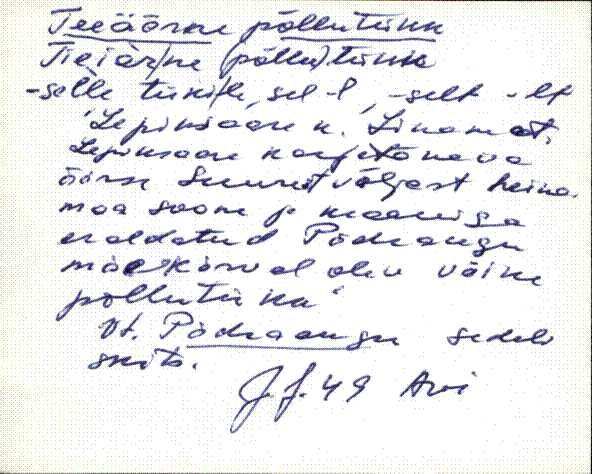 Teeäärne põllutükk
Tieiärne (põllu)tükk
-selle tüki/le, sel -l, -selt -lt
'Lepinsaare k. Linamat.
Lepinsaare karjatänava
äärse Suurest väljast heina-
maa soone ja kraaviga
eraldatud Põdraangu
mäe kõrval olev väike
põllutükk'
Vt. Põdraangu sedeli
skits.
J. J. 49 Avi